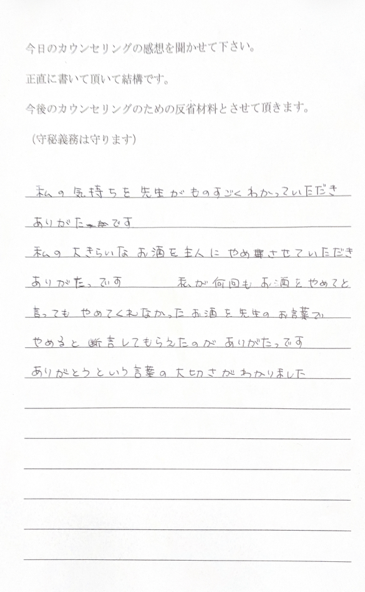 今日のカウンセリングの感想を聞かせて下さい。
正直に書いて頂いて結構です。
今後のカウンセリングのための反省材料とさせて頂きます。
（守秘義務は守ります）
私の気持ちを先生がものすごくわかっていただき
ありがたいです
私の大きらいなお酒を主人にやめさせていただき
ありがたいです 私が何回もお酒をやめてと
言ってもやめてくれなかったお酒を先生のお言葉で
やめると断言してもらえたのがありがたいです
ありがとうという言葉の大切さがわかりました